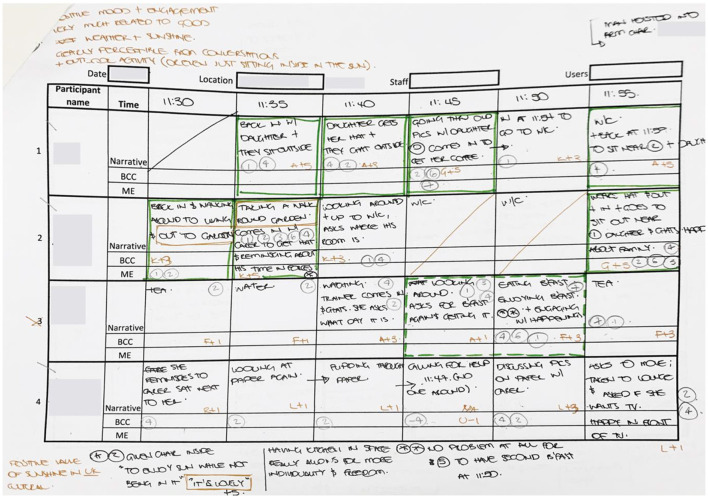 POSITIVE MOOD + ENGAGEMENT
VERY MUCH RELATED TO GOOD
WEATHER + SUNSHINE.
CLEARLY PERCEPTIBLE FROM CONVERSATIONS
+ OUTDOOR ACTIVITY (OR EVEN JUST SITTING INSIDE IN THE SUN).
MAN HOISTED INTO
ARM CHAIR.
Date Location Staff Users
Participant name Time 11:30 11:35 11:40 11:45 11:50 11:55
1
BACK IN W/
DAUGHTER +
THEY SIT OUTSIDE
1 4 A+5
DAUGHTER GETS
HER HAT +
THEY CHAT OUTSIDE
4 2 A+3
GOING THRU OLD
PICS W/ DAUGHTER
COMES IN TO
GET HER COFFEE.
G+5
IN AT 11:54 TO
GO TO W/C.
1 K+3
W/C.
+ BACK AT 11:59
TO SIT NEAR 2 + DAUGHTER
4 A+5
Narrative
BCC
ME
2
BACK IN & WALKING
AROUND TO LIVING
& OUT TO GARDEN
K+3
1 2
TAKING A WALK
ROUND GARDEN.
COMES IN W/
CARER TO GET HAT
& REMINISCING ABOUT
HIS TIME IN FORCES
K+5
LOOKING AROUND
+ UP TO W/C,
ASKS WHERE HIS
ROOM IS.
K+3 1 4
W/C.
W/C.
HAT & OUT
+ IN + GOES TO
SIT OUT NEAR
1 DAUGHTER & CHATS
ABOUT FAMILY. 4
G+5 2 6 3
Narrative
BCC
ME
3
TEA. 2
F+1
WATER 2
F+1
WATCHING. 4
TRAINER COMES IN
& CHATS. SHE ASKS 2
WHAT DAY IT IS.
A+3
LOOKING 1 3
AROUND. 4
ASKS FOR B'FAST
AGAIN & GETTING IT.
A+1
EATING B'FAST
ENJOYING B'FAST.
+ ENGAGING
W/ HAPPENING
4 6 1 F+3
TEA.
F+3
Narrative
BCC
ME
4
SHE
REMINISCES TO
CARER SAT NEXT
TO HER.
4
LOOKING AT
PAPER AGAIN.
L+1
2
FLIPPING THROUGH
→ PAPER.
L+1
2
CALLING FOR HELP
→ 11:47. (NO
ONE AROUND).
-4 U-1
DISCUSSING PICS
ON PAPER W/
CARER.
L+3
4 2
ASKS TO MOVE;
TAKEN TO LOUNGE
& ASKED IF SHE 2
WANTS TV. 4
HAPPY IN FRONT
OF TV.
L+1
Narrative
BCC
ME
POSITIVE VALUE
OF SUNSHINE IN UK
CULTURE.
* 2 GIVEN CHAIR INSIDE
"TO ENJOY SUN WHILE NOT
BEING IN IT" "IT'S LOVELY"
+5
HAVING KITCHEN IN SPACE
REALLY ALLOWS FOR MORE
INDIVIDUALITY & FREEDOM.
** NO PROBLEM AT ALL FOR
TO HAVE SECOND B'FAST
AT 11:50.